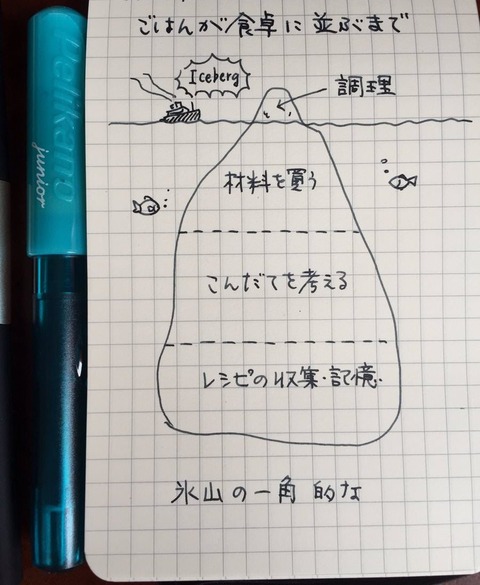 ごはんが食卓に並ぶまで
Iceberg
調理
材料を買う
こんだてを考える
レシピの収集・記憶
氷山の一角的な
Pelikano
junior